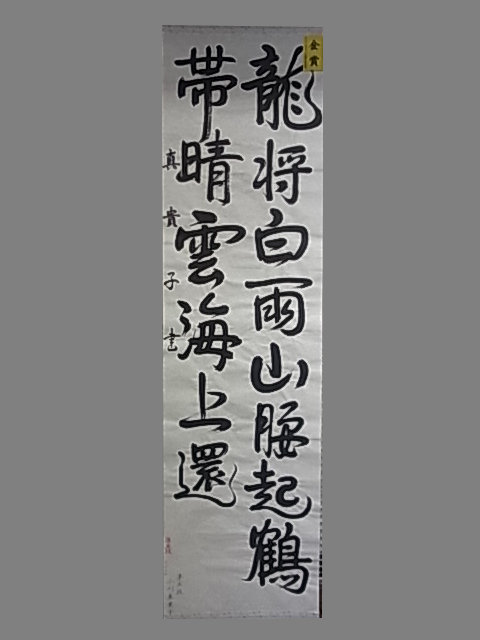 金賞
龍将白雨山腰起鶴
帯晴雲海上還
真貴子書